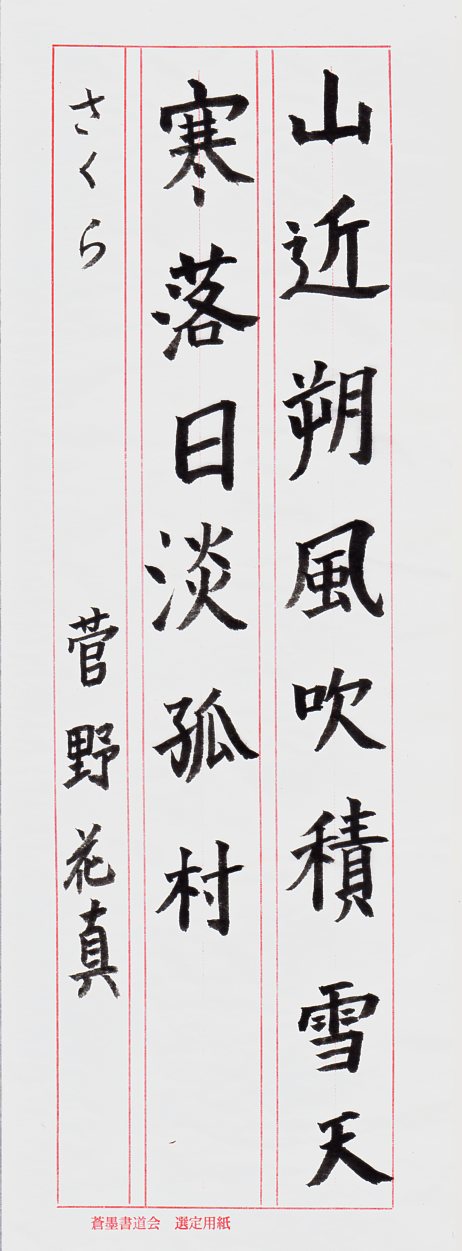 山近朔風吹積雪天
寒落日淡孤村
さくら 菅野花真
蒼墨書道会 選定用紙